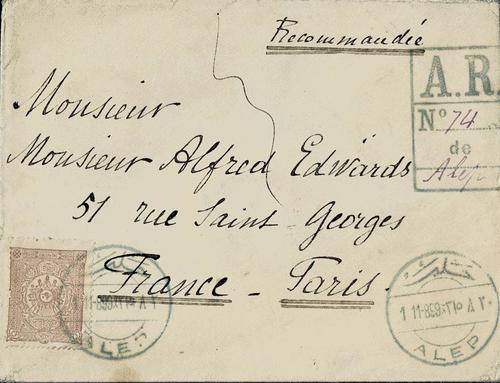 Recommandée
A.R.
No 74
de
Alep
Monsieur
Monsieur Alfred Edwards
51 rue Saint-Georges
France - Paris.
ALEP
1 11-899
ALEP